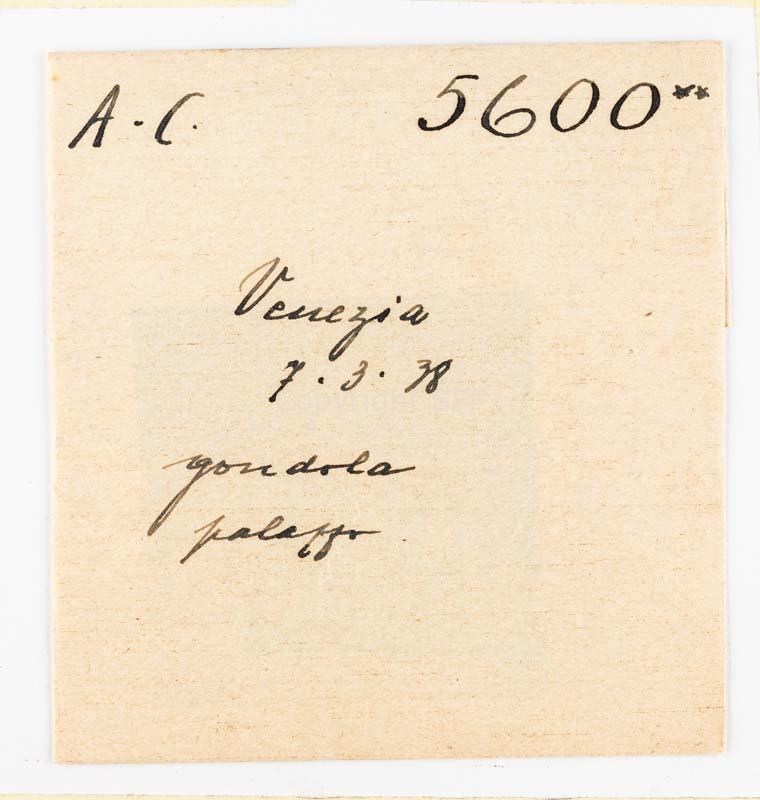 A. C. 5600**
Venezia
7. 3. 38
gondola
palazzo